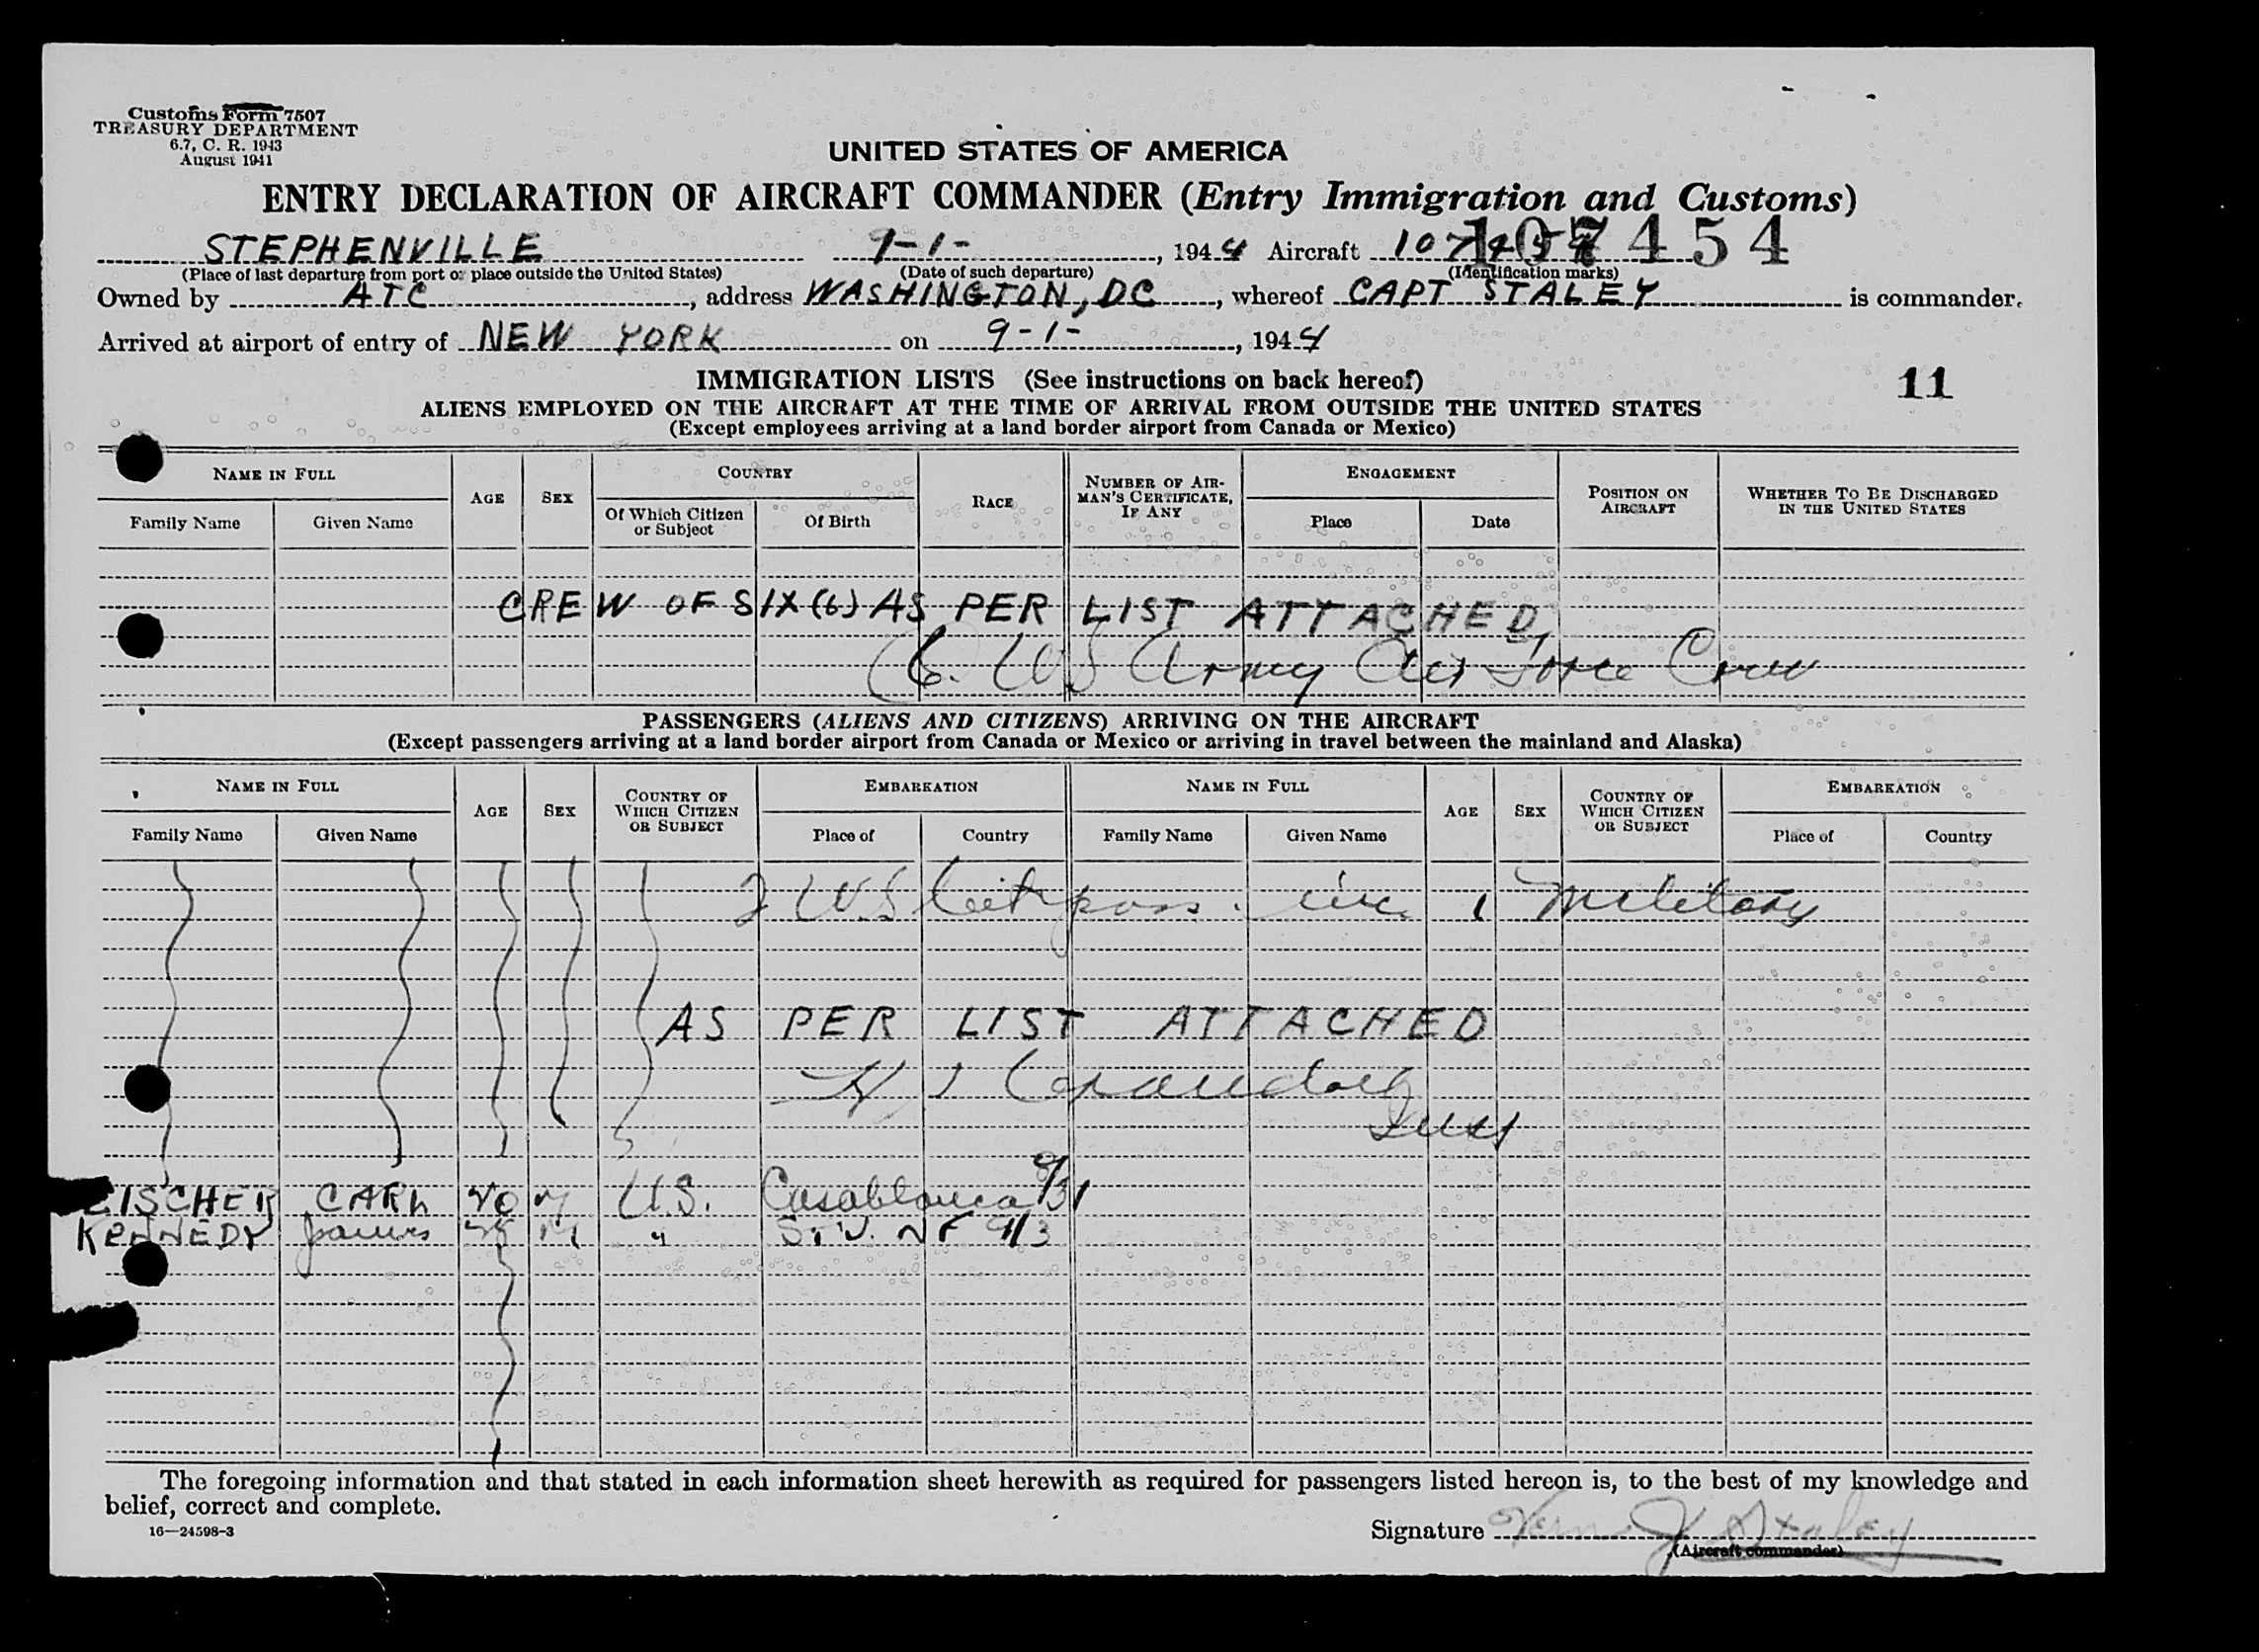 Customs Form 7507
TREASURY DEPARTMENT
6.7, C. R. 1943
August 1941
UNITED STATES OF AMERICA
ENTRY DECLARATION OF AIRCRAFT COMMANDER (Entry Immigration and Customs)
STEPHENVILLE 9-1-, 1944 Aircraft 107454
(Place of last departure from port or place outside the United States) (Date of such departure) (Identification marks)
Owned by ATC, address WASHINGTON, DC, whereof CAPT STALEY is commander.
Arrived at airport of entry of NEW YORK on 9-1-, 1944
IMMIGRATION LISTS (See instructions on back hereof)
11
ALIENS EMPLOYED ON THE AIRCRAFT AT THE TIME OF ARRIVAL FROM OUTSIDE THE UNITED STATES
(Except employees arriving at a land border airport from Canada or Mexico)
NAME IN FULL AGE SEX COUNTRY RACE NUMBER OF AIRMAN'S CERTIFICATE, IF ANY ENGAGEMENT POSITION ON AIRCRAFT WHETHER TO BE DISCHARGED IN THE UNITED STATES
Family Name Given Name Of Which Citizen or Subject Of Birth Place Date
CREW OF SIX (6) AS PER LIST ATTACHED
6. US Army Air Force Crew
PASSENGERS (ALIENS AND CITIZENS) ARRIVING ON THE AIRCRAFT
(Except passengers arriving at a land border airport from Canada or Mexico or arriving in travel between the mainland and Alaska)
NAME IN FULL AGE SEX COUNTRY OF WHICH CITIZEN OR SUBJECT EMBARKATION NAME IN FULL AGE SEX COUNTRY OF WHICH CITIZEN OR SUBJECT EMBARKATION
Family Name Given Name Place of Country Family Name Given Name Place of Country
2 U.S. Cit pass. inc. 1 military
AS PER LIST ATTACHED
CARL M U.S. Casablanca 8/31
KENNEDY James M " St. V. NF 9/3
The foregoing information and that stated in each information sheet herewith as required for passengers listed hereon is, to the best of my knowledge and
belief, correct and complete.
16—24598-3
Signature Vern J Staley
(Aircraft commander)